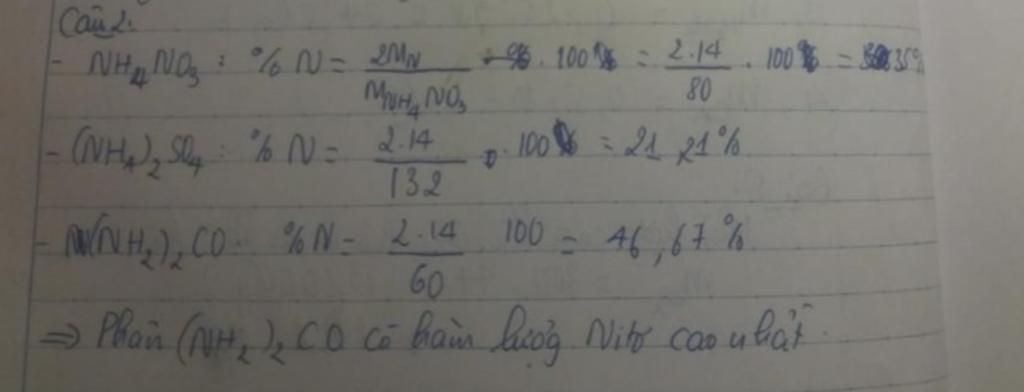 Câu 2:
- NH4NO3 : % N = 2MN / MNH4NO3 . 100 = 2.14 / 80 . 100 = 35%
- (NH4)2SO4 : % N = 2.14 / 132 . 100 = 21,21%
- (NH2)2CO % N = 2.14 / 60 100 = 46,67%
=> Phân (NH2)2CO có hàm lượng Nitơ cao nhất.